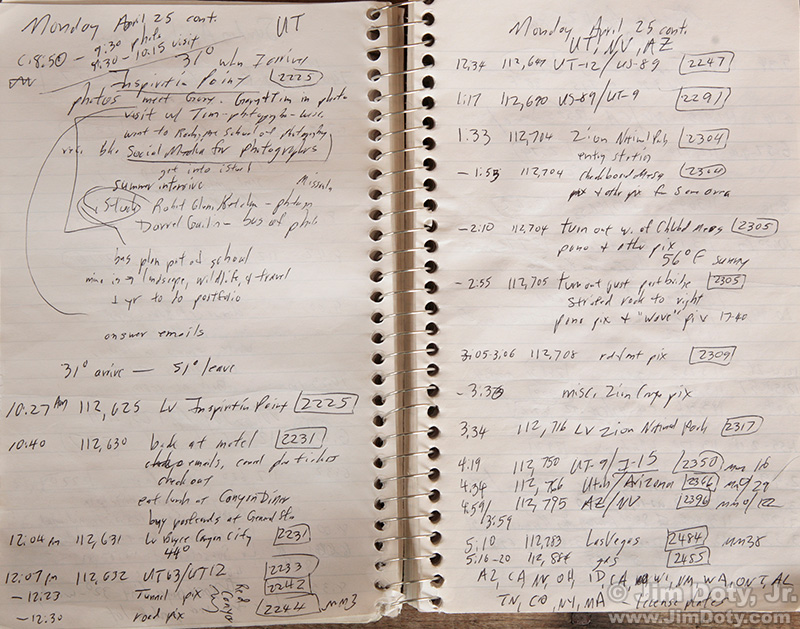 Monday April 25 cont. UT
C: 8:50 - 9:30 photo
9:30 - 10:15 visit
31° when I arrive
Inspiration Point 2225
photos meet Gary. Gary & Tim in photo
visit w/ Tom - photographer -
went to Rocky Mt School of Photography
bk. Social Media for Photographers
get into iStock
summer intensive Missoula
Study Robt Glenn Ketchum - photog
Darrel Gulin - bus of photo
bus plan part of school
mine is in landscape, wildlife, & travel
1 yr to do portfolio
answer emails
31° arrive — 51° leave
10:27 AM 112,625 Lv Inspiration Point 2225
10:40 112,630 back at motel 2231
emails,
check out
eat lunch at Canyon Diner
buy postcards at General Sto
12:04 pm 112,631 Lv Bryce Canyon City 2231
44°
12:07 pm 112,632 UT63/UT12 2233
-12:23 Tunnel pix 2242
-12:30 road pix Red Canyon 2244 mm3
Monday April 25 cont.
UT, NV, AZ
12:34 112,647 UT-12/US-89 2247
1:17 112,690 US-89/UT-9 2291
1:33 112,704 Zion National Park 2304
entry station
-1:53 112,704 Checkboard Mesa 2304
pix & other pix f same area
-2:10 112,704 turn out w. of Chkbd Mesa 2305
pano & other pix
56°F sunny
-2:55 112,705 turnout just past bridge 2305
striated rock to right
pano pix & "wave" pix 17-40
3:05-3:06 112,708 rd/mt pix 2309
-3:33 misc. Zion Cnyn pix
3:34 112,716 Lv Zion National Park 2317
4:19 112,750 UT-9/I-15 2350 mm 16
4:34 112,766 Utah/Arizona 2366 mm 0/29
4:59/ 112,795 AZ/NV 2396 mm 0/122
3:59
5:10 112,883 Las Vegas 2484 mm 38
5:16-20 112,884 gas 2485
AZ, CA, NV, OH, ID, WI, NM, WA, ONT, AL
TN, CO, NY, MA license plates
© Jim Doty, Jr.
www.JimDoty.com